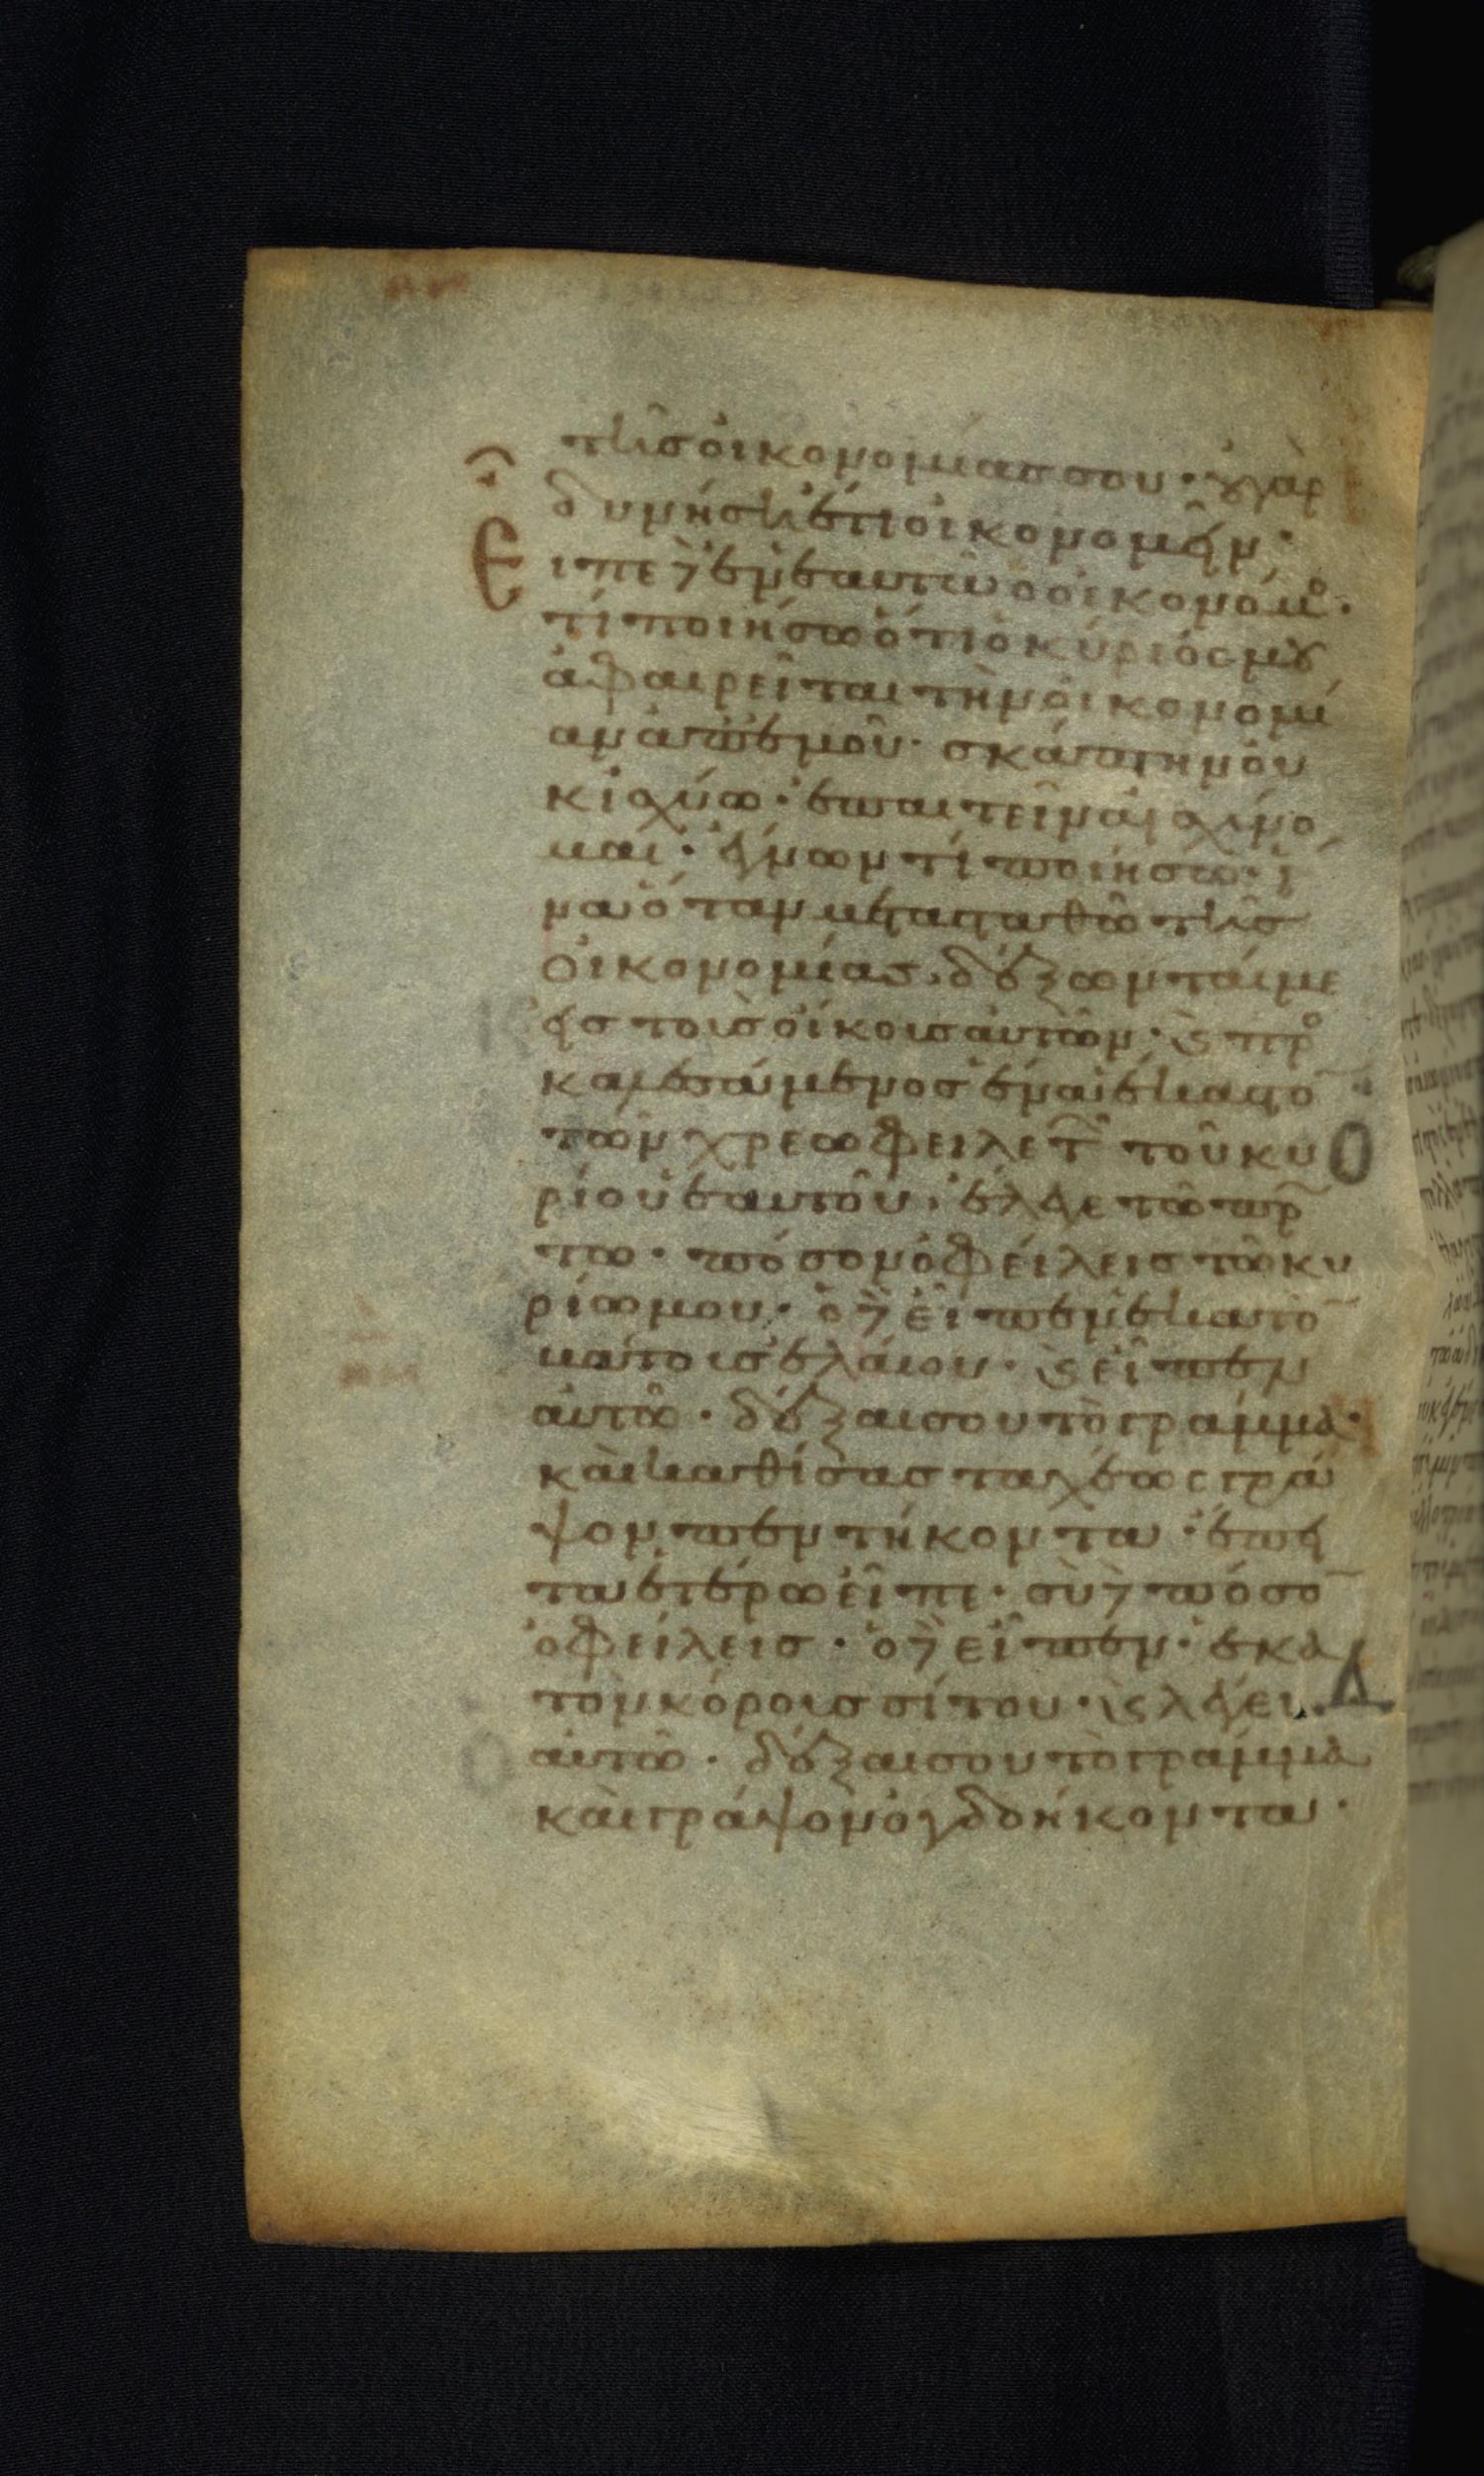 τῆς οἰκονομίας σου· οὐ γὰρ
δυνήσῃ ἔτι οἰκονομεῖν·
Εἶπε δὲ ἐν ἑαυτῷ ὁ οἰκονόμος·
τί ποιήσω ὅτι ὁ κύριός μου
ἀφαιρεῖται τὴν οἰκονομί
αν ἀπ' ἐμοῦ· σκάπτειν οὐ
κ ἰσχύω· ἐπαιτεῖν αἰσχύνο
μαι· ἔγνων τί ποιήσω· ἵ
να ὅταν μετασταθῶ τῆς
οἰκονομίας, δέξωνταί με
εἰς τοὺς οἴκους αὐτῶν· ϗ προσ
καλεσάμενος ἕνα ἕκαστον
τῶν χρεωφειλετῶν τοῦ κυ
ρίου ἑαυτοῦ· ἔλεγε τῷ πρώ
τῳ· πόσον ὀφείλεις τῷ κυ
ρίῳ μου· ὁ δὲ εἶπεν ἑκατὸν
βάτους ἐλαίου· ϗ εἶπεν
αὐτῷ· δέξαι σου τὸ γράμμα·
καὶ καθίσας ταχέως γρά
ψον πεντήκοντα· ἔπει
τα ἑτέρῳ εἶπε· σὺ δὲ πόσον
ὀφείλεις· ὁ δὲ εἶπεν· ἑκα
τὸν κόρους σίτου· ϗ λέγει
αὐτῷ· δέξαι σου τὸ γράμμα
καὶ γράψον ὀγδοήκοντα·